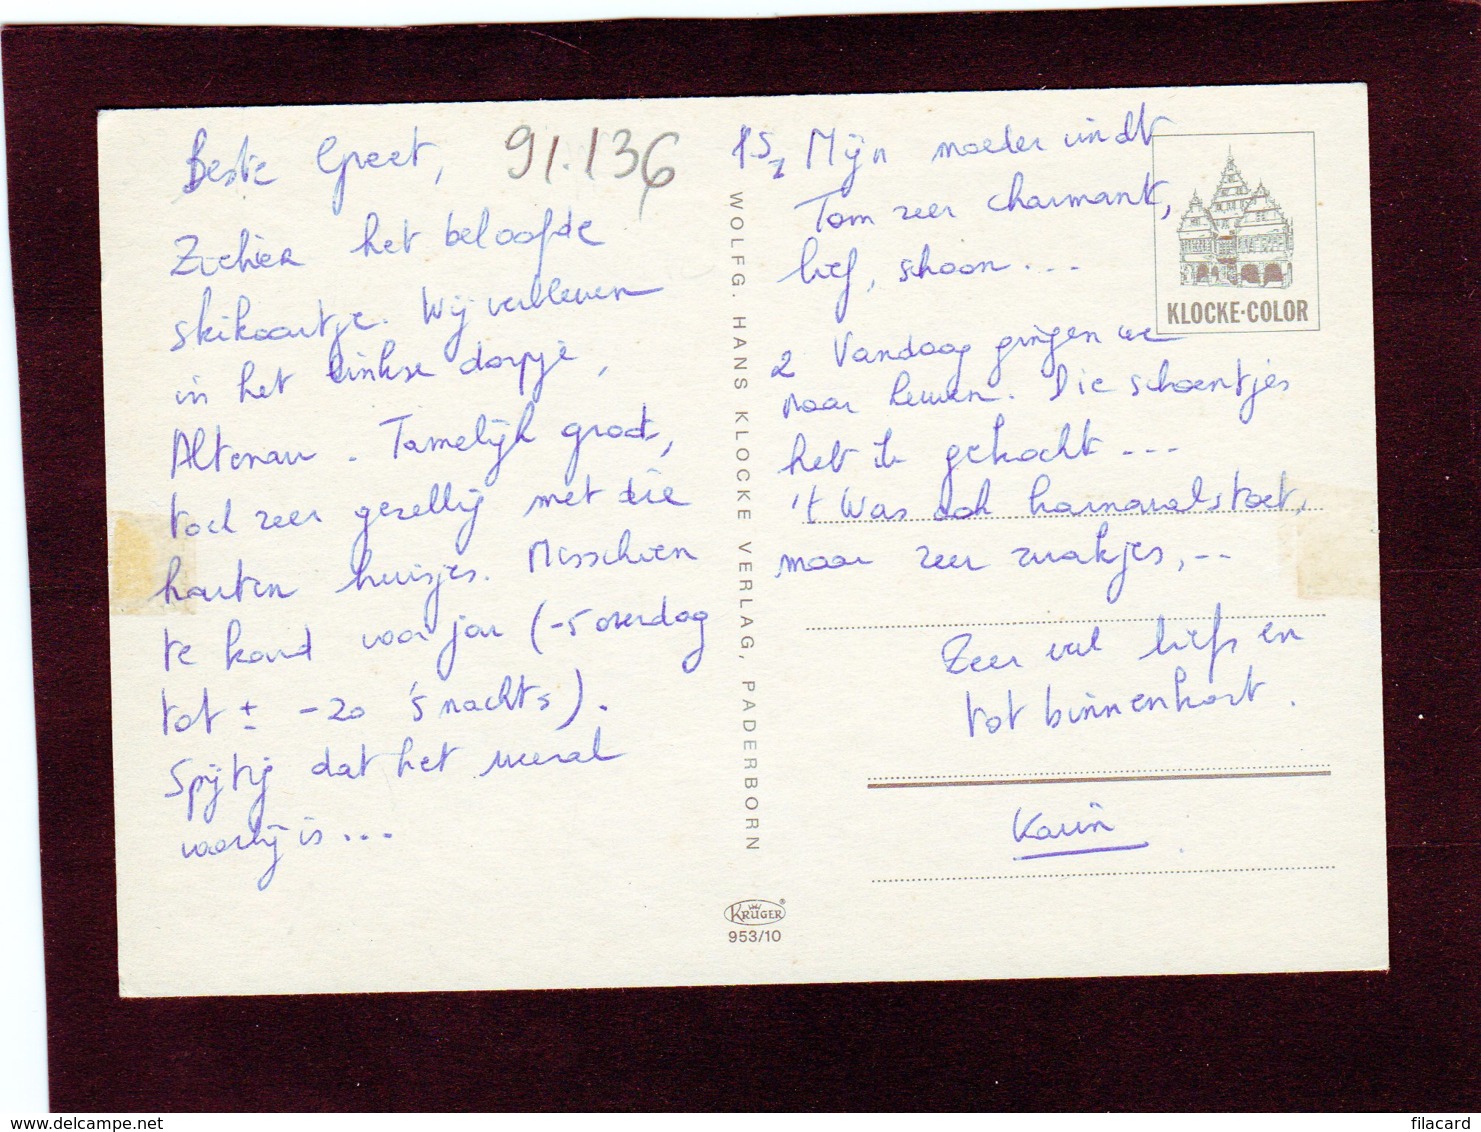 Beste Greet,
91.136
Ziehier het beloofde
skikaartje. Wij verbleven
in het linkse dorpje,
Altenau. Tamelijk groot,
toch zeer gezellig met die
houten huisjes. Misschien
te koud voor jou (-5 overdag
tot ± -20 's nachts).
Spijtig dat het meeral
voorbij is...
PS 1 Mijn moeder vindt
Tom zeer charmant,
lief, schoon...
2 Vandaag gingen we
naar Leuven. Die schoentjes
heb ik gekocht ...
't Was ook karnavalstoet,
maar zeer zwakjes,...
Zeer veel liefs en
tot binnenkort.
Karin
WOLFG. HANS KLOCKE VERLAG, PADERBORN
KLOCKE-COLOR
KRÜGER®
953/10
delcampe.net
filacard